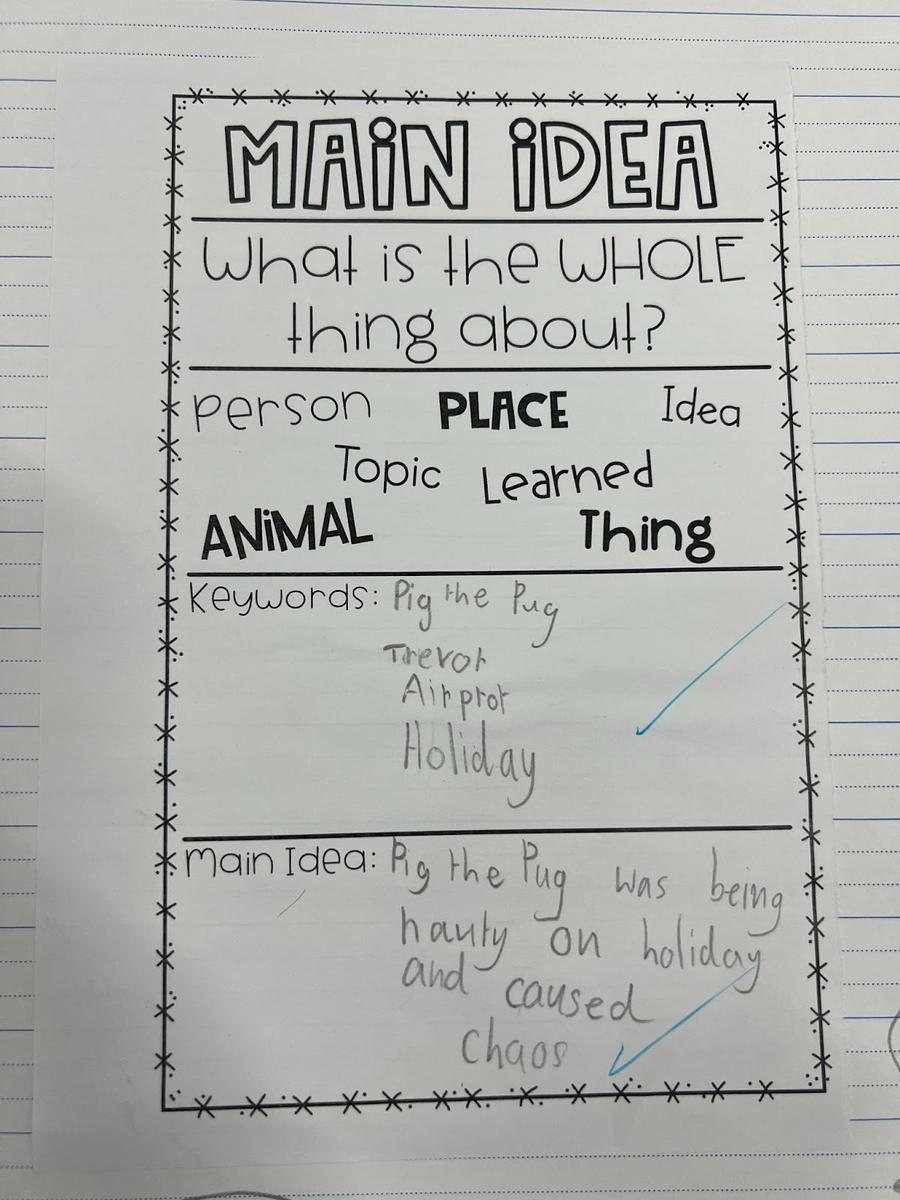 MAiN iDEA
What is the WHOLE
thing about?
person PLACE Idea
Topic Learned
ANiMAL Thing
Keywords: Pig the Pug
Trevor
Airprot
Holiday
Main Idea: Pig the Pug was being
hauty on holiday
and caused
chaos